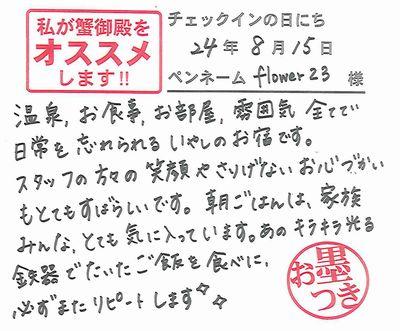 私が蟹御殿を
オススメ
します!!
チェックインの日にち
24年8月15日
ペンネーム flower23 様
温泉,お食事,お部屋,雰囲気 全てで
日常を忘れられるいやしのお宿です。
スタッフの方々の笑顔やさりげないお心づかい
もとてもすばらしいです。朝ごはんは、家族
みんな,とても気に入っています。あのキラキラ光る
鉄器でたいたご飯を食べに,
必ずまたリピートします
お墨つき